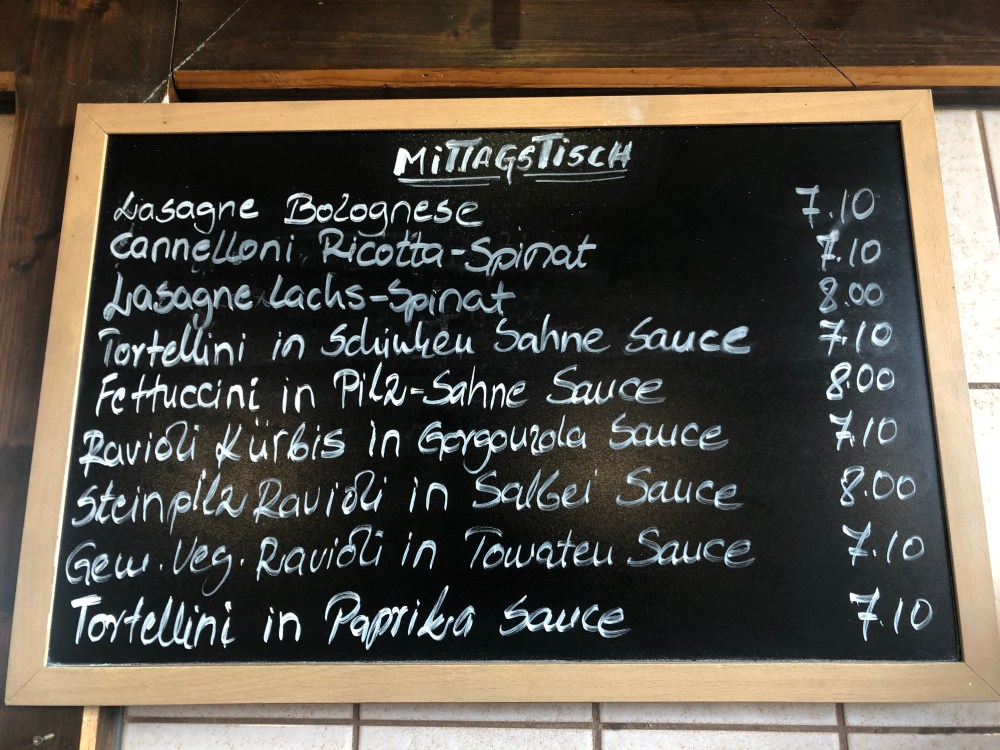 MiTTAGSTiSCH
Lasagne Bolognese 7.10
Cannelloni Ricotta-Spinat 7.10
Lasagne Lachs-Spinat 8.00
Tortellini in Schinken Sahne Sauce 7.10
Fettuccini in Pilz-Sahne Sauce 8.00
Ravioli Kürbis in Gorgonzola Sauce 7.10
Steinpilz Ravioli in Salbei Sauce 8.00
Gem. Veg. Ravioli in Tomaten Sauce 7.10
Tortellini in Paprika Sauce 7.10